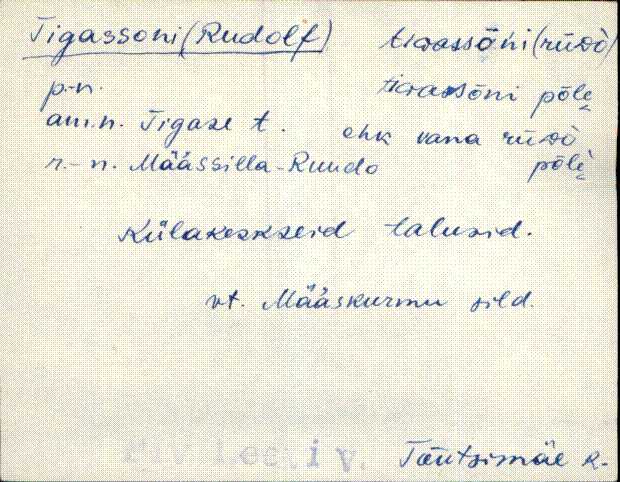 Tigassoni (Rudolf) tiɢassõni (rüùdò)
p.-n. tiɢassõni põlè̬
am.n. Tigase t. ehk vana rüùdò
r.-n. Määssilla-Ruudo põlè̬
Külakeskseid talusid.
vt. Määskurmu sild.
Lestiv. Tõutsimäe k.